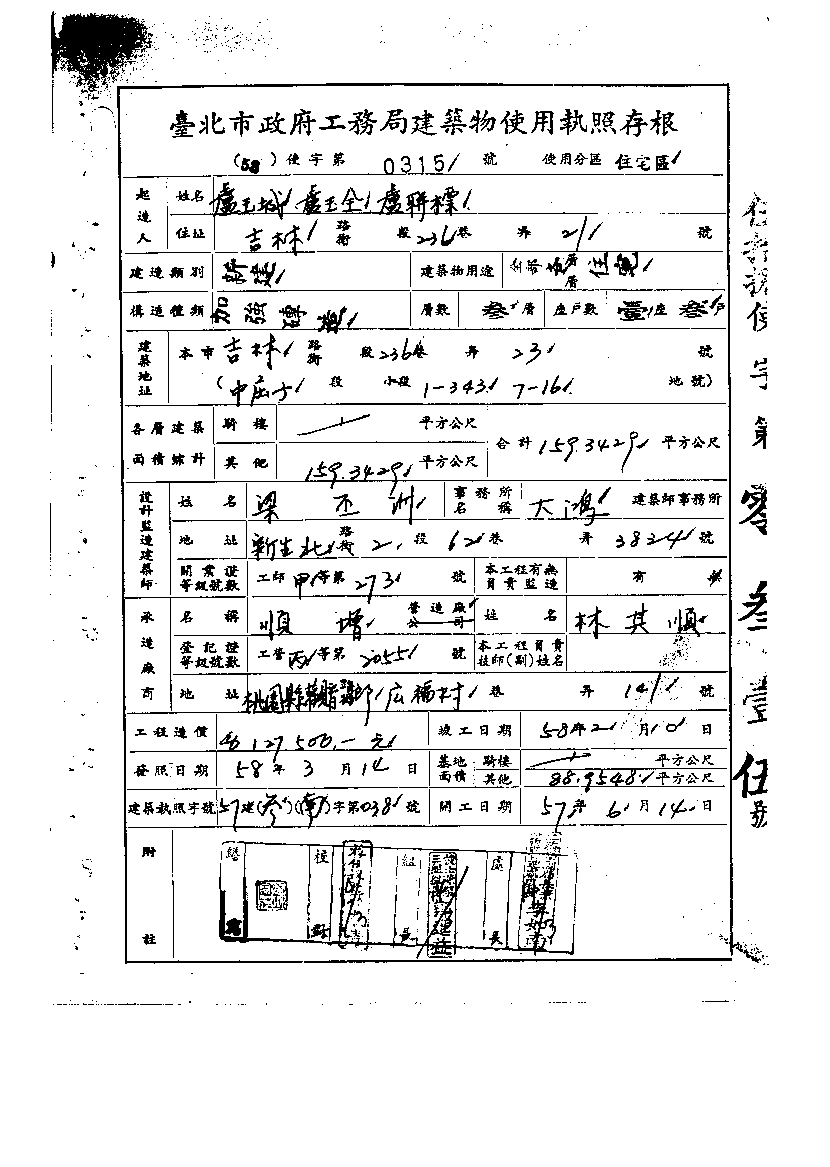 臺北市政府工務局建築物使用執照存根
(58)使字第 0315 號 使用分區 住宅區
起造人 姓名 盧玉城 盧玉全 盧聯標
住址 吉林 路街 段 236 巷 弄 21 號
建造類別 新建 建築物用途 住宅
構造種類 加強磚造 層數 叁層 座戶數 壹座 叁戶
建築地址 本市 吉林 路街 段 236 巷 弄 23 號
(中庄子 段 小段 1-343 7-16 地號)
各層建築面積總計 騎樓 平方公尺 合計 159.3429 平方公尺
其他 159.3429 平方公尺
設計監造建築師 姓名 梁丕洲 事務所名稱 大鴻 建築師事務所
地址 新生北 路街 2 段 62 巷 弄 3824 號
開業證等級號數 工師 甲 等第 273 號 本工程有無負責監造 有 無
承造廠商 名稱 順增 營造廠公司 姓名 林其順
登記證等級號數 工營 丙 等第 2055 號 本工程負責技師(副)姓名
地址 桃園縣 広福村 巷 弄 14 號
工程造價 127500.-元 竣工日期 58年2月10日
發照日期 58年3月14日 基地面積 騎樓 平方公尺
其他 88.9548 平方公尺
建築執照字號 57建(叁)(南)字第038號 開工日期 57年6月14日
附註
組長 處長
使字第零叁壹伍號